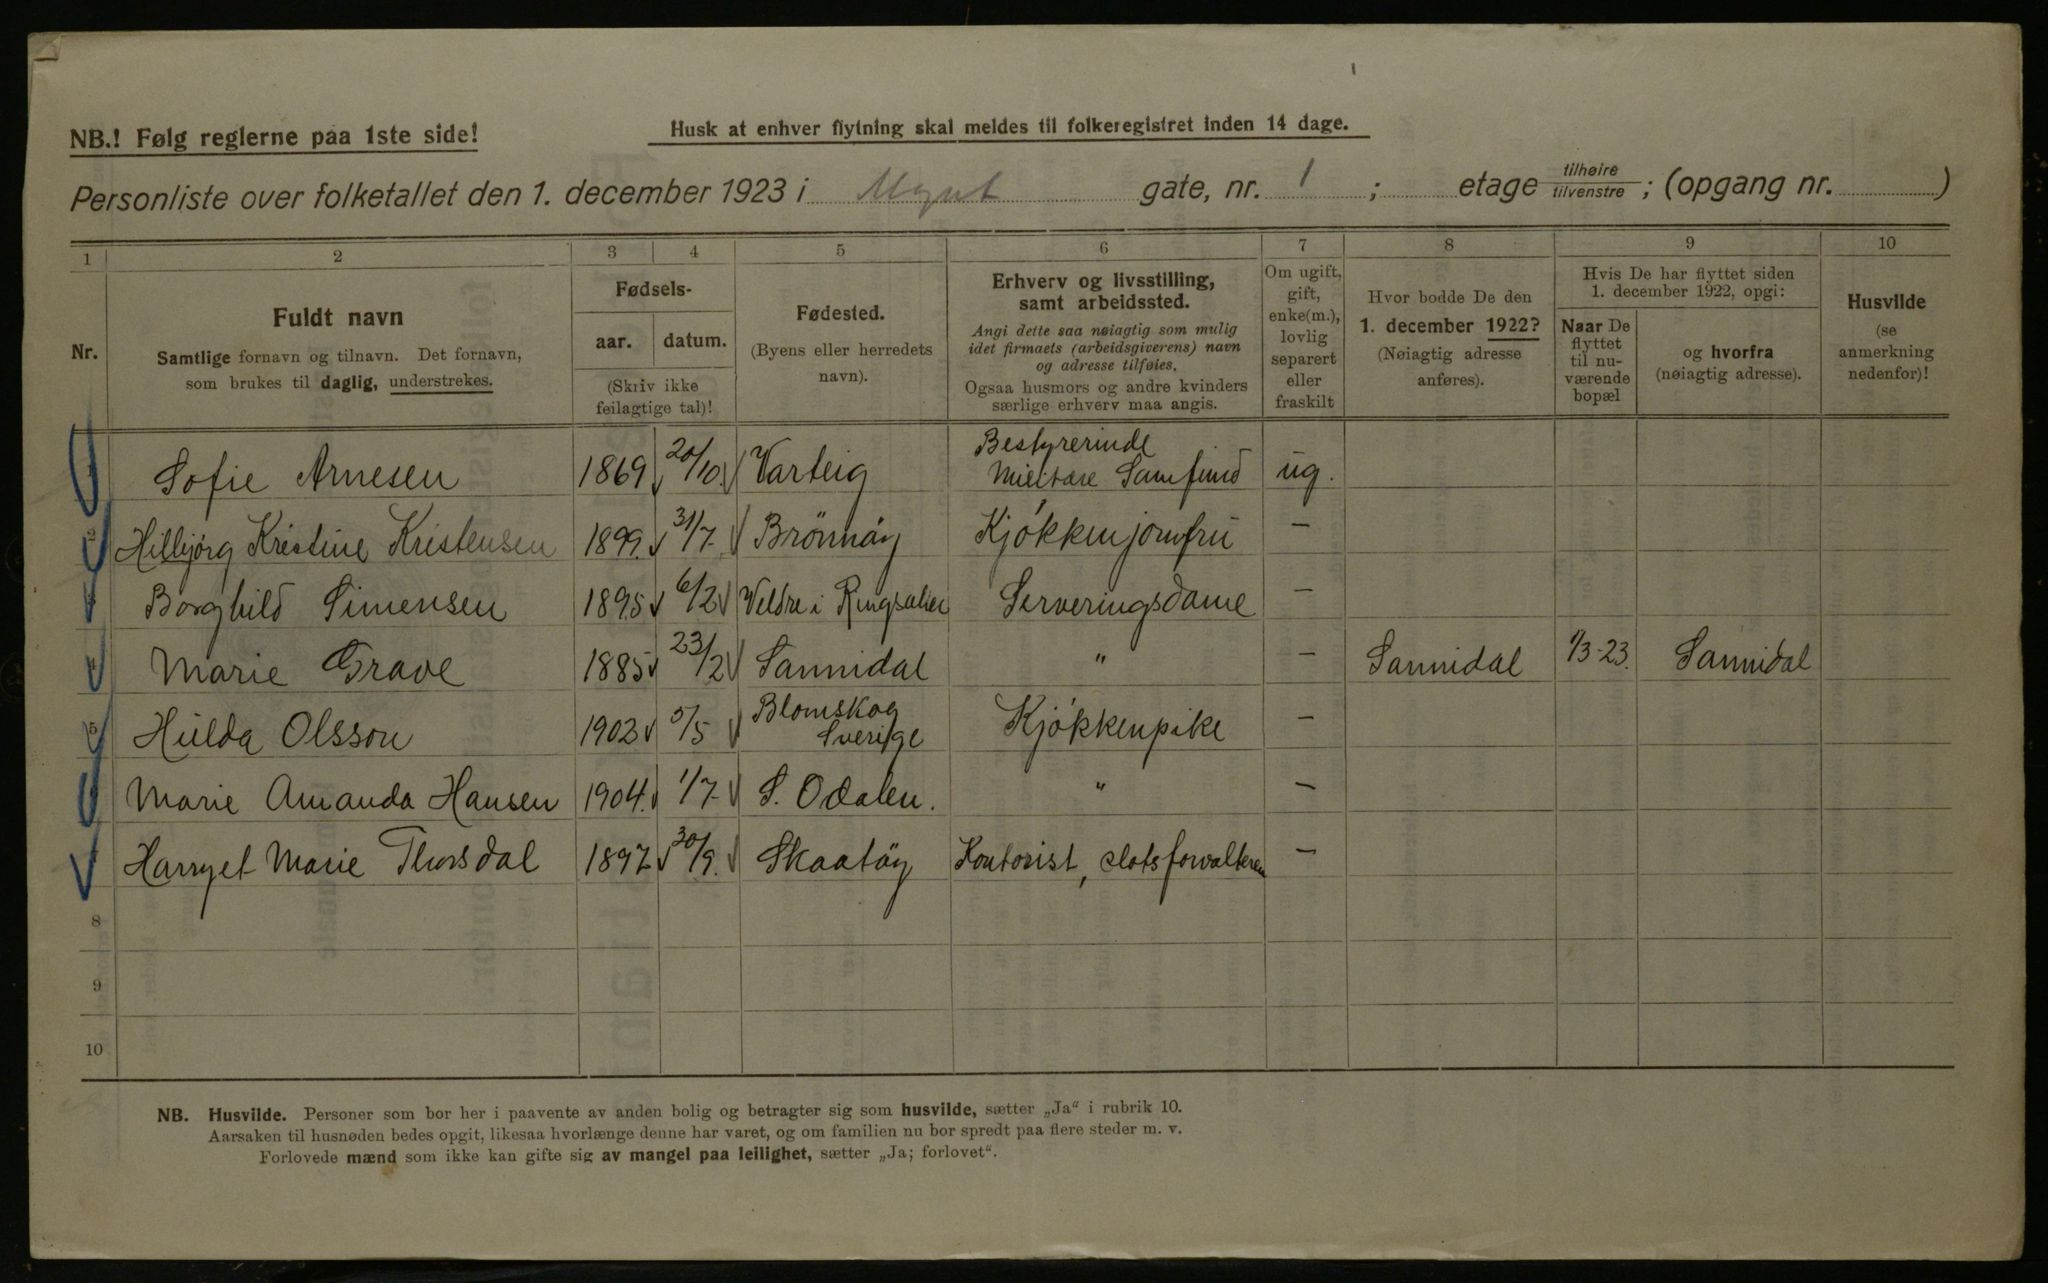 NB.! Følg reglerne paa 1ste side!
Husk at enhver flytning skal meldes til folkeregistret inden 14 dage.
Personliste over folketallet den 1. december 1923 i Mynt gate, nr. 1 ; etage tilhøire tilvenstre ; (opgang nr. )
1 2 3 4 5 6 7 8 9 10
Nr.
Fuldt navn
Samtlige fornavn og tilnavn. Det fornavn,
som brukes til daglig, understrekes.
Fødsels-
aar. datum.
(Skriv ikke
feilagtige tal)!
Fødested.
(Byens eller herredets
navn).
Erhverv og livsstilling,
samt arbeidssted.
Angi dette saa nøiagtig som mulig
idet firmaets (arbeidsgiverens) navn
og adresse tilføies.
Ogsaa husmors og andre kvinders
særlige erhverv maa angis.
Om ugift,
gift,
enke(m.),
lovlig
separert
eller
fraskilt
Hvor bodde De den
1. december 1922?
(Nøiagtig adresse
anføres).
Hvis De har flyttet siden
1. december 1922, opgi:
Naar De
flyttet
til nu-
værende
bopæl
og hvorfra
(nøiagtig adresse).
Husvilde
(se
anmerkning
nedenfor)!
Sofie Arnesen 1869 20/10. Varteig Bestyrerinde Militære Samfund ug.
Hilbjörg Kristine Kristensen 1899. 31/7- Brönnöy Kjökkenjomfru —
Borghild Simensen 1895 6/2 Veldre i Ringsaker Serveringsdame —
Marie Grave 1885 23/2 Sannidal " — Sannidal 1/3-23. Sannidal
5 Hulda Olsson 1902 5/5 Blomskog Sverige Kjökkenpike —
Marie Amanda Hansen 1904. 1/7- S. Odalen. " —
Harryet Marie Thorsdal 1897 30/9. Skaatöy Kontorist, slotsforvalteren —
8
9
10
NB. Husvilde. Personer som bor her i paavente av anden bolig og betragter sig som husvilde, sætter „Ja“ i rubrik 10.
Aarsaken til husnøden bedes opgit, likesaa hvorlænge denne har varet, og om familien nu bor spredt paa flere steder m. v.
Forlovede mænd som ikke kan gifte sig av mangel paa leilighet, sætter „Ja; forlovet“.